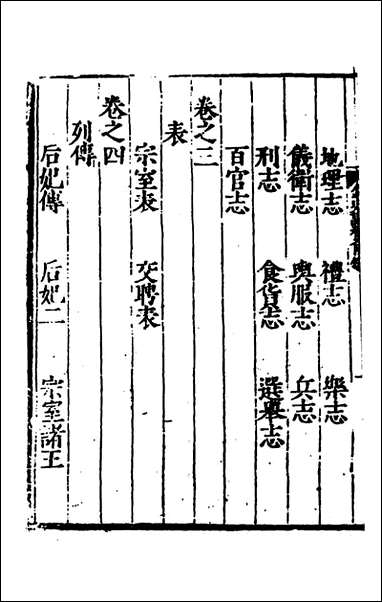 地理志　禮志　樂志
儀衛志　輿服志　兵志
刑志　食貨志　選舉志
百官志
卷之三
表
宗室表　交聘表
卷之四
列傳
后妃傳　后妃二　宗室諸王